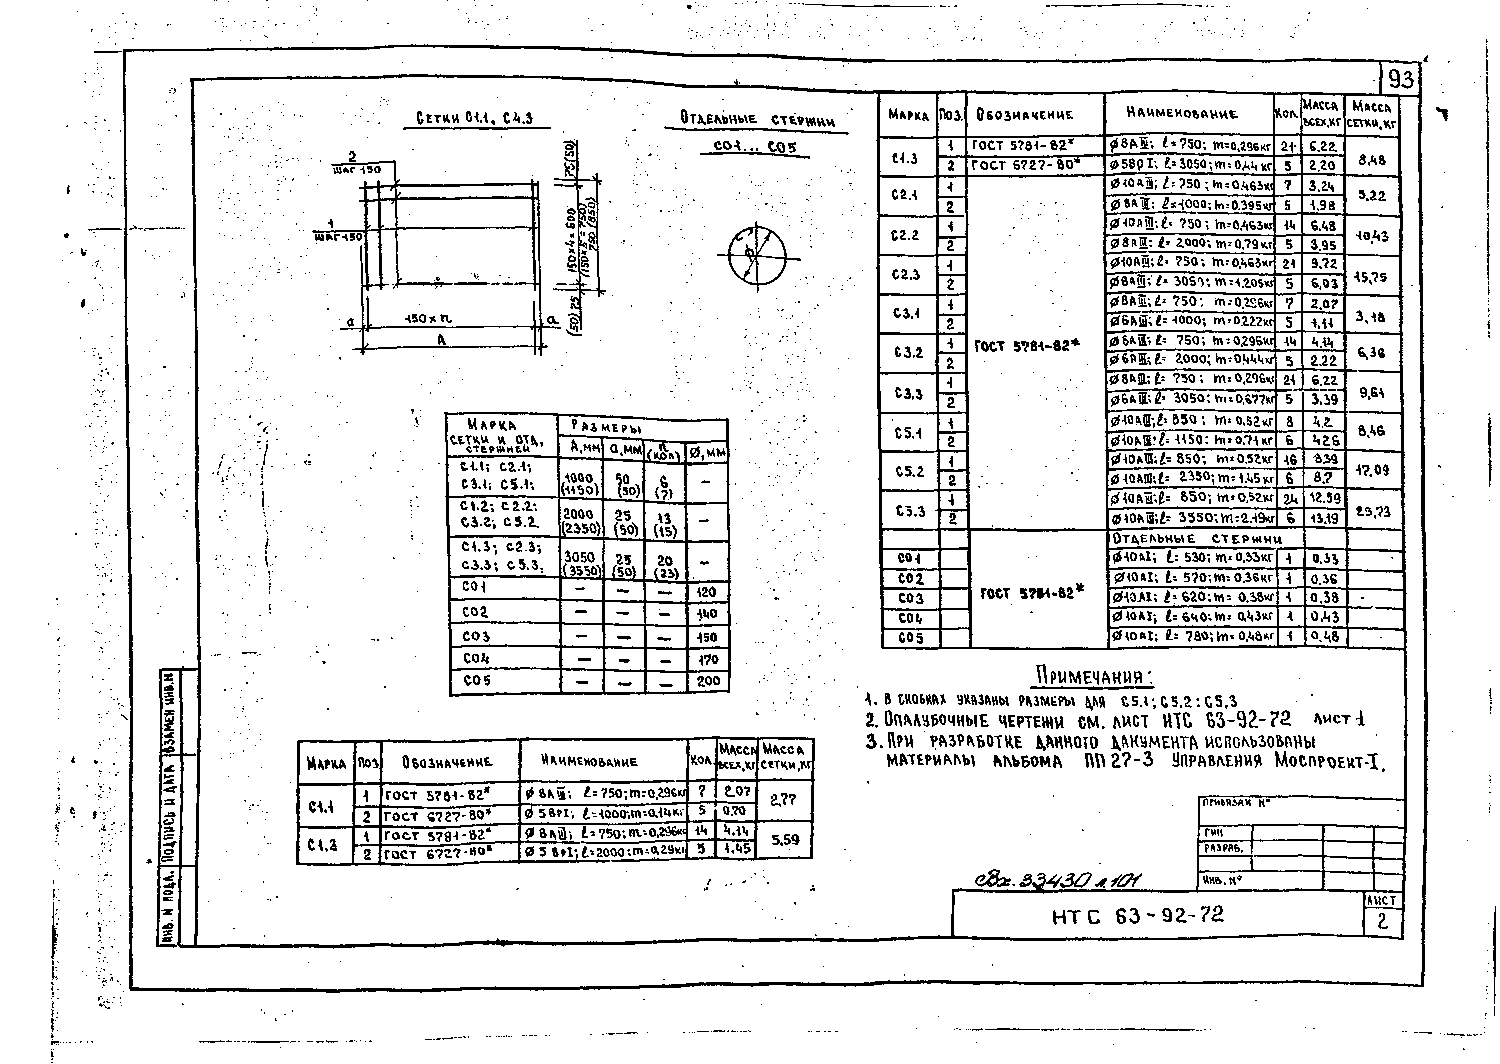 93
Сетки С1.1, С4.3
Отдельные стержни
СО1... СО5
2
шаг 150
1
шаг 150
75 (50)
150×4=600
(150×5=750)
750 (850)
(50) 75
а 150×n а
А
Ø
Марка сетки и отд. стержней | Размеры
А,мм | а,мм | n (кол) | Ø,мм
С1.1; С2.1; С3.1; С5.1; | 1000 (1150) | 50 (50) | 6 (7) | —
С1.2; С2.2; С3.2; С5.2 | 2000 (2350) | 25 (50) | 13 (15) | —
С1.3; С2.3; С3.3; С5.3. | 3050 (3550) | 25 (50) | 20 (23) | —
СО1 | — | — | — | 120
СО2 | — | — | — | 140
СО3 | — | — | — | 150
СО4 | — | — | — | 170
СО5 | — | — | — | 200
Марка | Поз | Обозначение | Наименование | Кол. | Масса всех,кг | Масса сетки,кг
С1.1 | 1 | ГОСТ 5781-82* | Ø 8АIII; ℓ=750; m=0,296кг | 7 | 2.07 | 2,77
2 | ГОСТ 6727-80* | Ø 5ВрI; ℓ=1000; m=0,14кг | 5 | 0,70
С1.2 | 1 | ГОСТ 5781-82* | Ø 8АIII; ℓ=750; m=0,296кг | 14 | 4.14 | 5,59
2 | ГОСТ 6727-80* | Ø 5 ВрI; ℓ=2000; m=0,29кг | 5 | 1.45
Марка | Поз. | Обозначение | Наименование | Кол. | Масса всех,кг | Масса сетки,кг
С1.3 | 1 | ГОСТ 5781-82* | Ø8АIII; ℓ=750; m=0,296кг | 21 | 6.22 | 8,48
2 | ГОСТ 6727-80* | Ø5ВрI; ℓ=3050; m=0,44кг | 5 | 2,20
С2.1 | 1 | ГОСТ 5781-82* | Ø10АIII; ℓ=750; m=0,463кг | 7 | 3,24 | 5,22
2 | Ø8АIII; ℓ=1000; m=0.395кг | 5 | 1.98
С2.2 | 1 | Ø10АIII; ℓ=750; m=0,463кг | 14 | 6.48 | 10,43
2 | Ø8АIII; ℓ=2000; m=0,79кг | 5 | 3.95
С2.3 | 1 | Ø10АIII; ℓ=750; m=0,463кг | 21 | 9.72 | 15,75
2 | Ø8АIII; ℓ=3050; m=1.205кг | 5 | 6,03
С3.1 | 1 | Ø8АIII; ℓ=750; m=0,296кг | 7 | 2.07 | 3,18
2 | Ø6АIII; ℓ=1000; m=0.222кг | 5 | 1,11
С3.2 | 1 | Ø8АIII; ℓ=750; m=0,296кг | 14 | 4.14 | 6,36
2 | Ø6АIII; ℓ=2000; m=0.444кг | 5 | 2.22
С3.3 | 1 | Ø8АIII; ℓ=750; m=0,296кг | 21 | 6.22 | 9,61
2 | Ø6АIII; ℓ=3050; m=0,677кг | 5 | 3.39
С5.1 | 1 | Ø10АIII; ℓ=850; m=0.52кг | 8 | 4.2 | 8,46
2 | Ø10АIII; ℓ=1150; m=0.71кг | 6 | 4.26
С5.2 | 1 | Ø10АIII; ℓ=850; m=0.52кг | 16 | 8.39 | 17,09
2 | Ø10АIII; ℓ=2350; m=1.45кг | 6 | 8,7
С5.3 | 1 | Ø10АIII; ℓ=850; m=0,52кг | 24 | 12.59
2 | Ø10АIII; ℓ=3550; m=2.19кг | 6 | 13,19
Отдельные стержни
СО1 | ГОСТ 5781-82* | Ø10АI; ℓ=530; m=0,33кг | 1 | 0,33
СО2 | Ø10АI; ℓ=570; m=0,36кг | 1 | 0,36
СО3 | Ø10АI; ℓ=620; m=0,38кг | 1 | 0,38
СО4 | Ø10АI; ℓ=640; m=0,43кг | 1 | 0.43
СО5 | Ø10АI; ℓ=780; m=0,48кг | 1 | 0,48
Примечания:
1. В скобках указаны размеры для С5.1; С5.2; С5.3
2. Опалубочные чертежи см. лист НТС 63-92-72 лист 1
3. При разработке данного дакумента использованы
материалы альбома ПП 27-3 Управления Моспроект-1.
Привязан №
ГИП
Разраб.
Инв. №
свх. 33430 л. 101
НТС 63-92-72
Лист
2
Инв. N подл. Подпись и дата Взамен инв.N